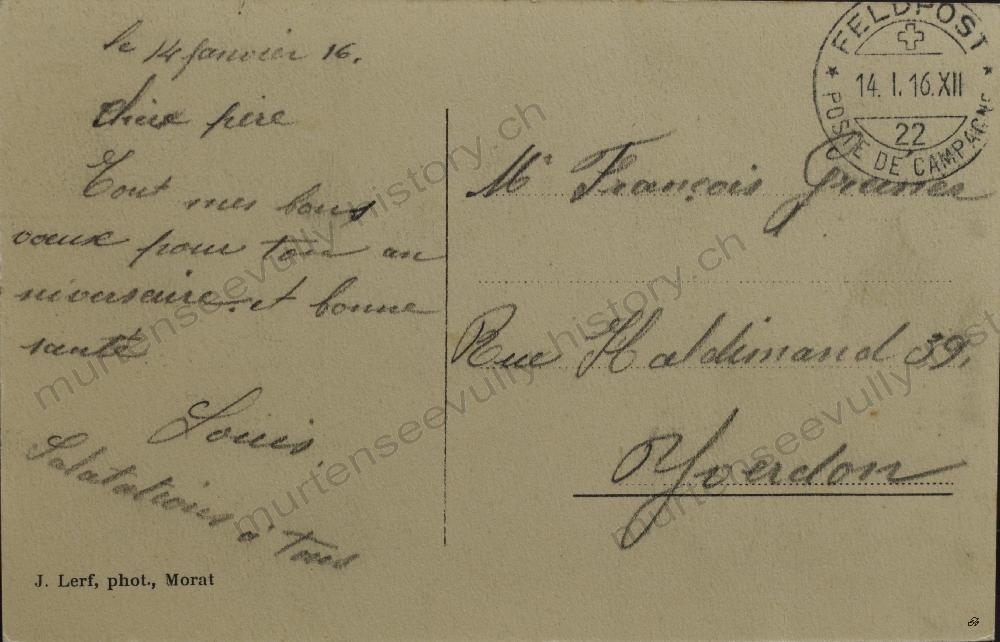 le 14 Janvier 16.
Chère père
Tout mes bons
voeux pour ton an
niversaire et bonne
santé
Louis.
Salutations à tous
J. Lerf, phot., Morat
FELDPOST
14. I. 16. XII
22
POSTE DE CAMPAGNE
Mr François
Rue Haldimand 39,
Yverdon
murtenseevully-history.ch
murtenseevully-history.ch
murtenseevully-history.ch